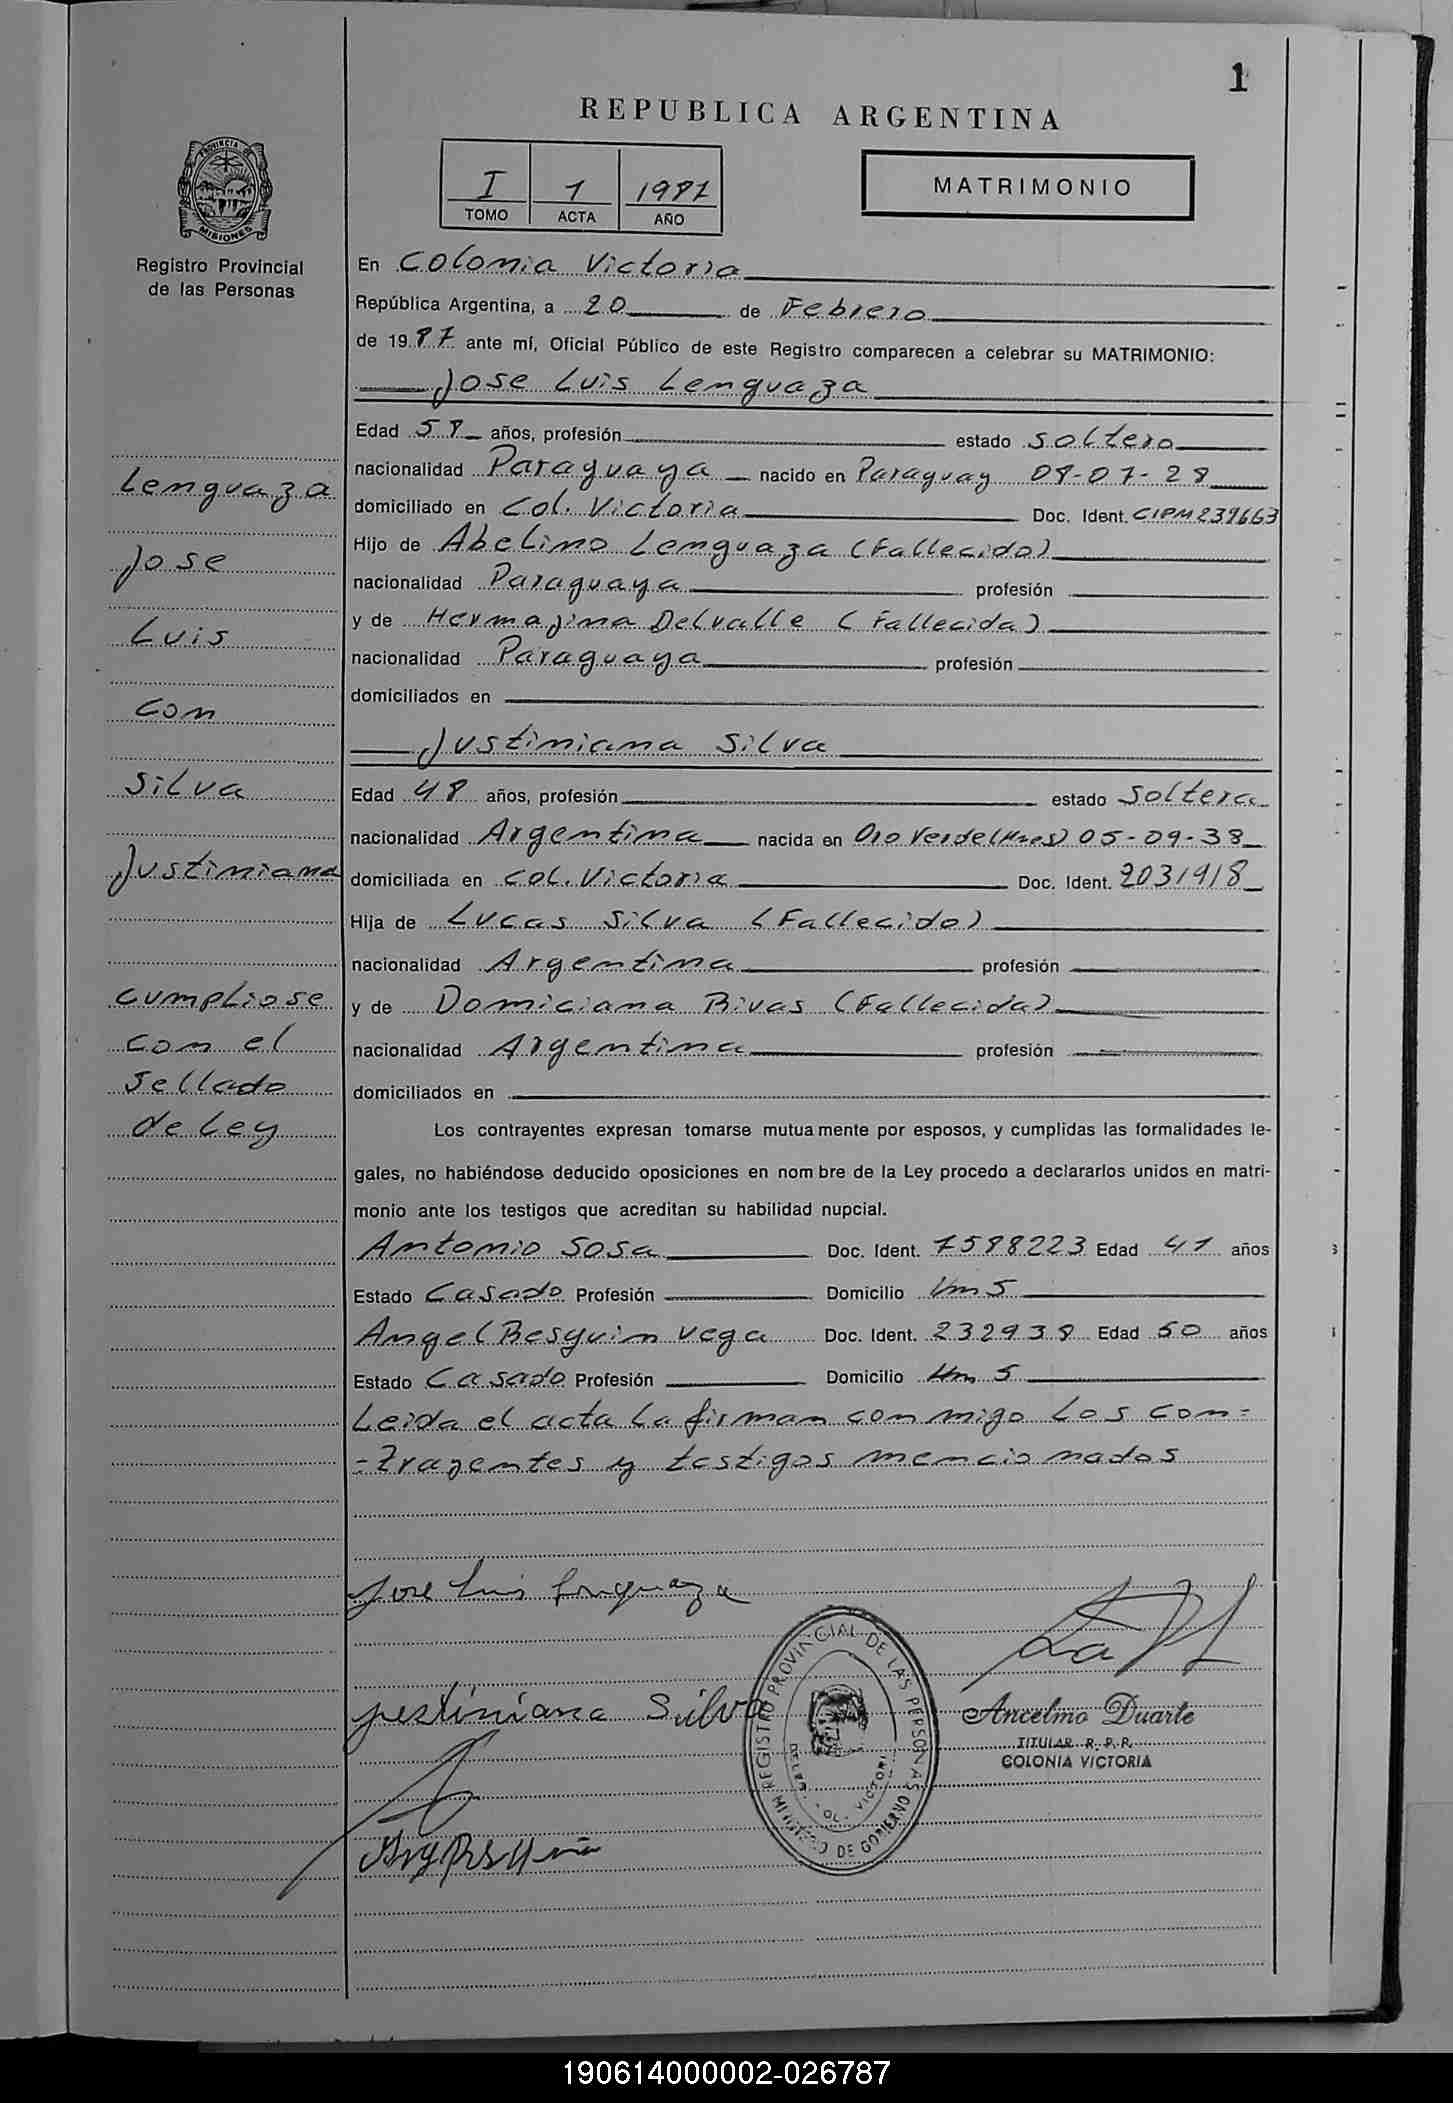 1
REPUBLICA ARGENTINA
I 1 1987
TOMO ACTA AÑO
MATRIMONIO
PROVINCIA DE MISIONES
Registro Provincial
de las Personas
En Colonia Victoria
República Argentina, a 20 de Febrero
de 1987 ante mí, Oficial Público de este Registro comparecen a celebrar su MATRIMONIO:
Jose Luis Lenguaza
Edad 58 años, profesión estado soltero
nacionalidad Paraguaya nacido en Paraguay 08-07-28
domiciliado en Col. Victoria Doc. Ident. CIPM239663
Hijo de Abelino Lenguaza (Fallecido)
nacionalidad Paraguaya profesión
y de Hermajina Delvalle (Fallecida)
nacionalidad Paraguaya profesión
domiciliados en
Justiniana Silva
Edad 48 años, profesión estado soltera
nacionalidad Argentina nacida en Oro Verde (Mnes) 05-09-38
domiciliada en Col. Victoria Doc. Ident. 2031918
Hija de Lucas Silva (Fallecido)
nacionalidad Argentina profesión
y de Domiciana Rivas (Fallecida)
nacionalidad Argentina profesión
domiciliados en
Los contrayentes expresan tomarse mutuamente por esposos, y cumplidas las formalidades le-
gales, no habiéndose deducido oposiciones en nombre de la Ley procedo a declararlos unidos en matri-
monio ante los testigos que acreditan su habilidad nupcial.
Antonio Sosa Doc. Ident. 7588223 Edad 41 años
Estado Casado Profesión Domicilio Km 5
Angel Resquin Vega Doc. Ident. 232938 Edad 50 años
Estado Casado Profesión Domicilio Km 5
Leida el acta la firman con migo los con=
=trajentes y testigos mencionados
Lenguaza
Jose
Luis
con
Silva
Justiniana
cumpliose
con el
sellado
de Ley
Jose Luis Lenguaza
justiniana Silva
REGISTRO PROVINCIAL DE LAS PERSONAS
MINISTERIO DE GOBIERNO
Ancelmo Duarte
TITULAR R. P. P.
COLONIA VICTORIA
190614000002-026787